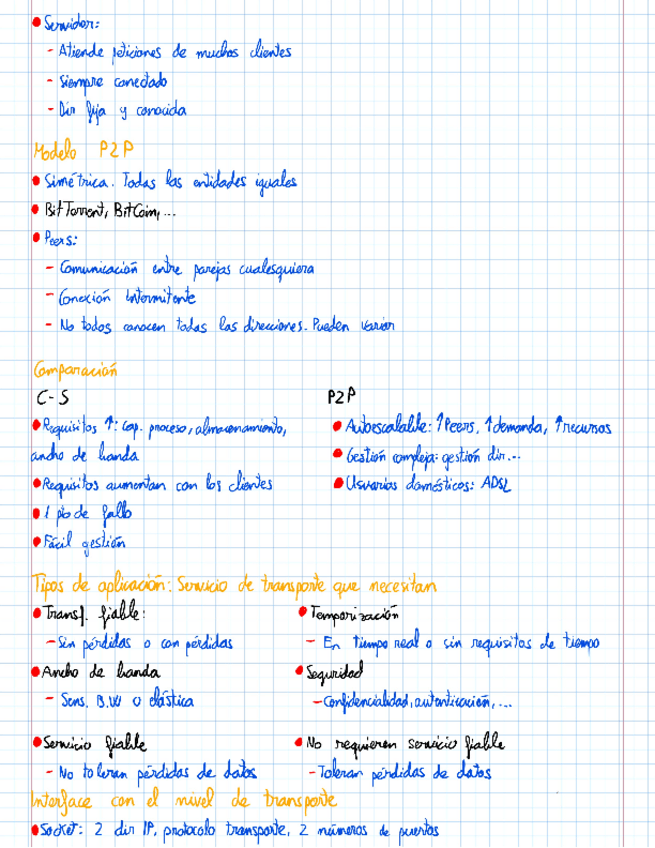 • Servidor:
- Atiende peticiones de muchos clientes
- Siempre conectado
- Dir fija y conocida
Modelo P2P
• Simétrica. Todas las entidades iguales
• BitTorrent, BitCoin, ...
• Peers:
- Comunicación entre parejas cualesquiera
- Conexión intermitente
- No todos conocen todas las direcciones. Pueden variar
Comparación
C-S
• Requisitos ↑: Cap. proceso, almacenamiento,
ancho de banda
• Requisitos aumentan con los clientes
• 1 pto de fallo
• Fácil gestión
P2P
• Autoescalable: ↑Peers, ↑demanda, ↑recursos
• Gestión compleja: gestión dir...
• Usuarios domésticos: ADSL
Tipos de aplicación: Servicio de transporte que necesitan
• Transf. fiable:
- Sin pérdidas o con pérdidas
• Temporización
- En tiempo real o sin requisitos de tiempo
• Ancho de banda
- Sens. B.W o elástica
• Seguridad
- Confidencialidad, autenticación, ...
• Servicio fiable
- No toleran pérdidas de datos
• No requieren servicio fiable
- Toleran pérdidas de datos
Interface con el nivel de transporte
• Socket: 2 dir IP, protocolo transporte, 2 números de puertos